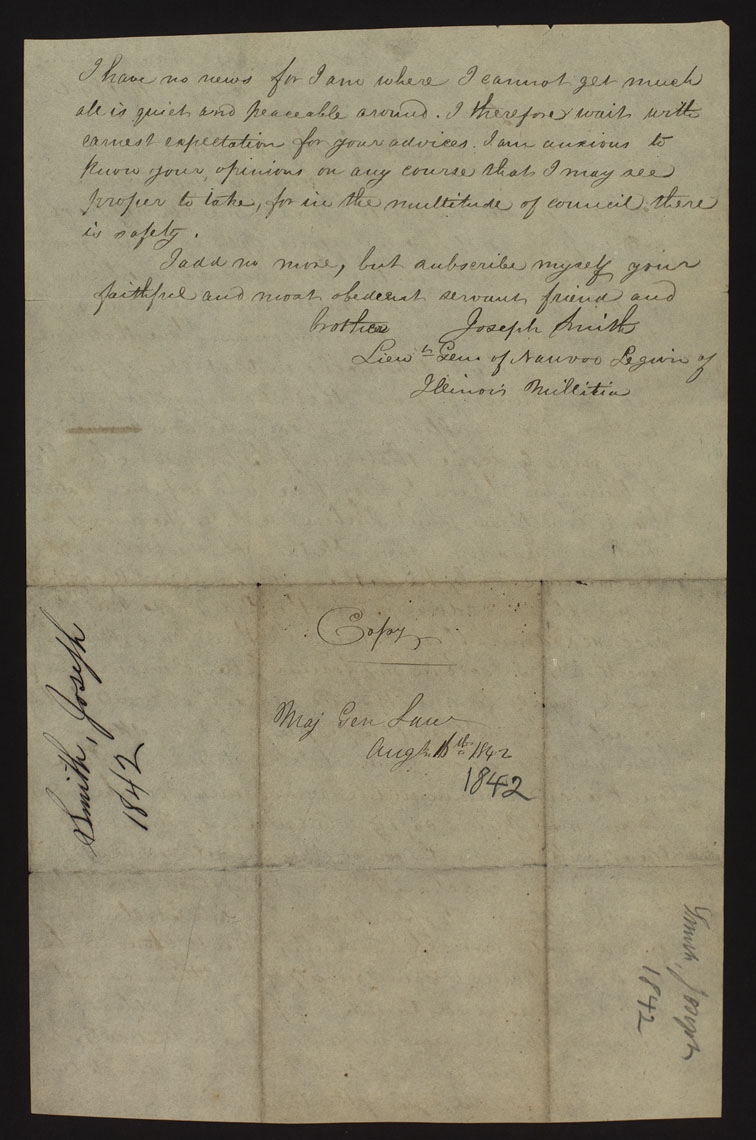 I have no news for I am where I cannot get much
all is quiet and peaceable around. I therefore wait with
earnest expectation for your advices. I am anxious to
know your opinions on any course that I may see
proper to take, for in the multitude of council there
is safety.
I add no more, but subscribe myself your
faithful and most obedient servant friend and
brother Joseph Smith
Lieut Gen of Nauvoo Legion of
Illinois Millitia
Copy
Maj Gen Law
Augt 15th 1842
1842
Smith, Joseph
1842
Smith, Joseph
1842